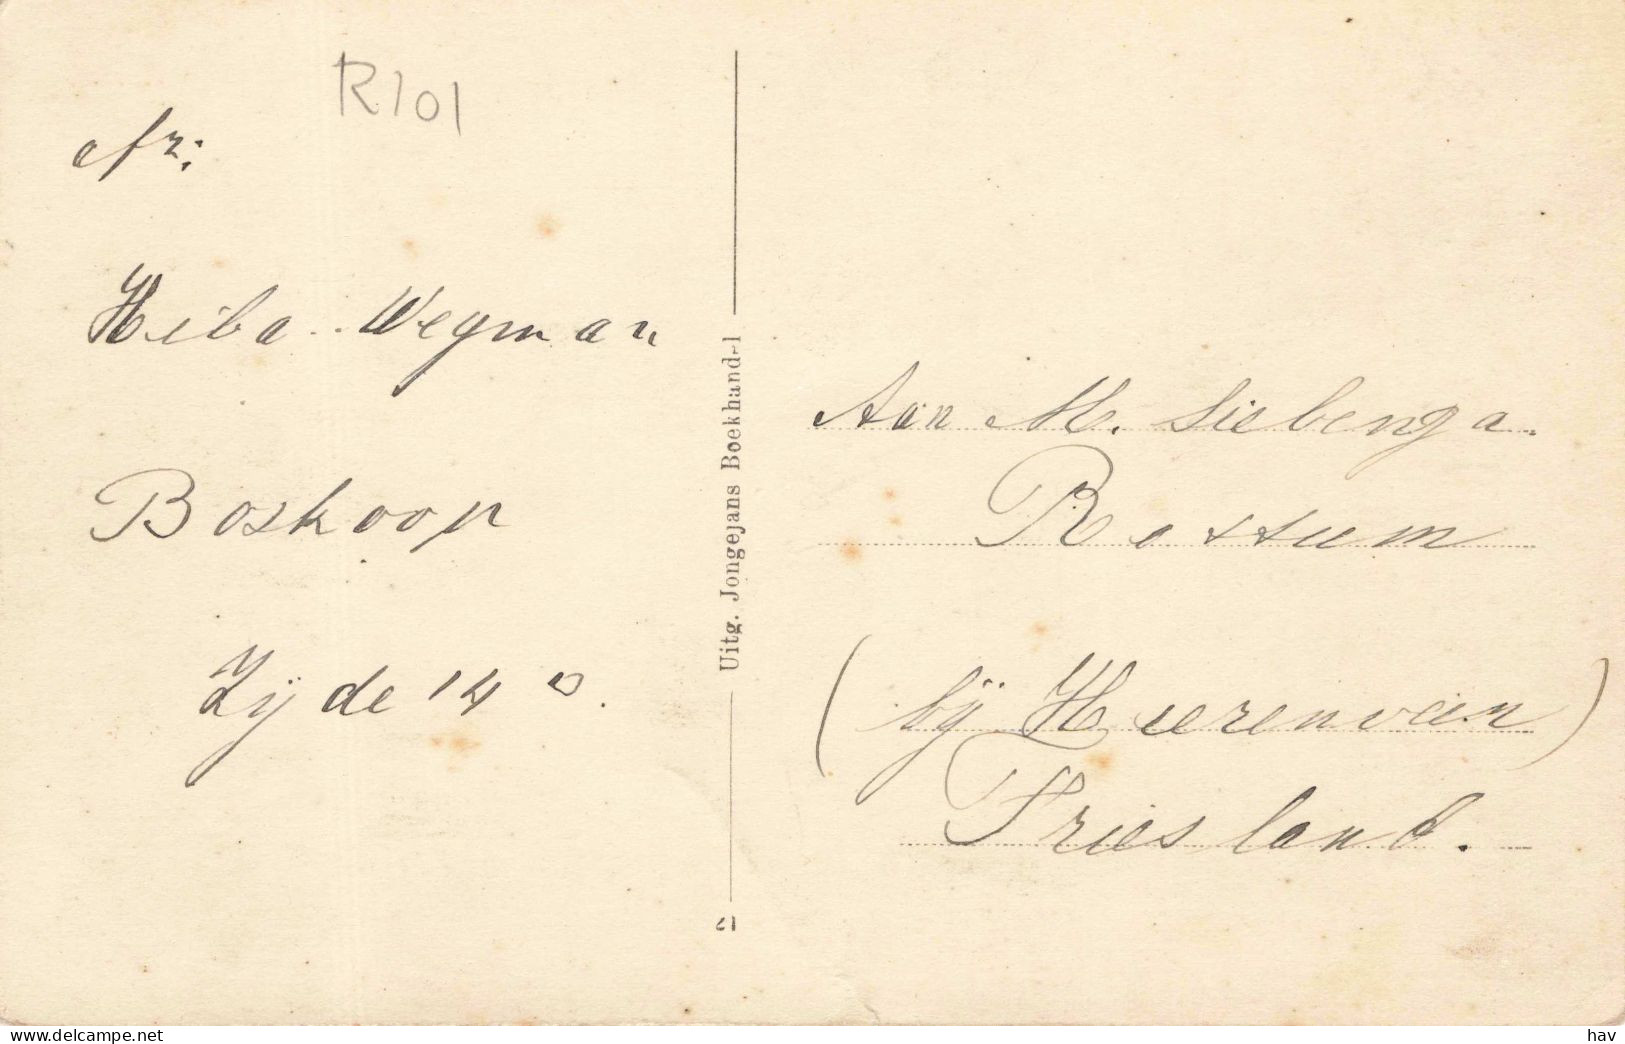 R101
afz:
Hiba Wegman
Boskoop
Zijde 14
Uitg. Jongejans Boekhand-l
21
Aan M. Siebenga.
Rottum
(bij Heerenveen)
Friesland.
www.delcampe.net
hav